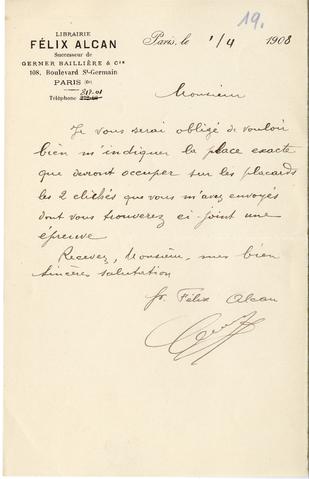 19.
LIBRAIRIE
FÉLIX ALCAN
Successeur de
GERMER BAILLIÈRE & Cie
108, Boulevard St-Germain
PARIS (6e)
Téléphone 817.01
Paris, le 1/4 1908
Monsieur
Je vous serai obligé de vouloir
bien m'indiquer la place exacte
que devront occuper sur les placards
les 2 clichés que vous m'avez envoyés
dont vous trouverez ci-joint une
épreuve
Recevez, Monsieur, mes bien
sincères salutation
Félix Alcan